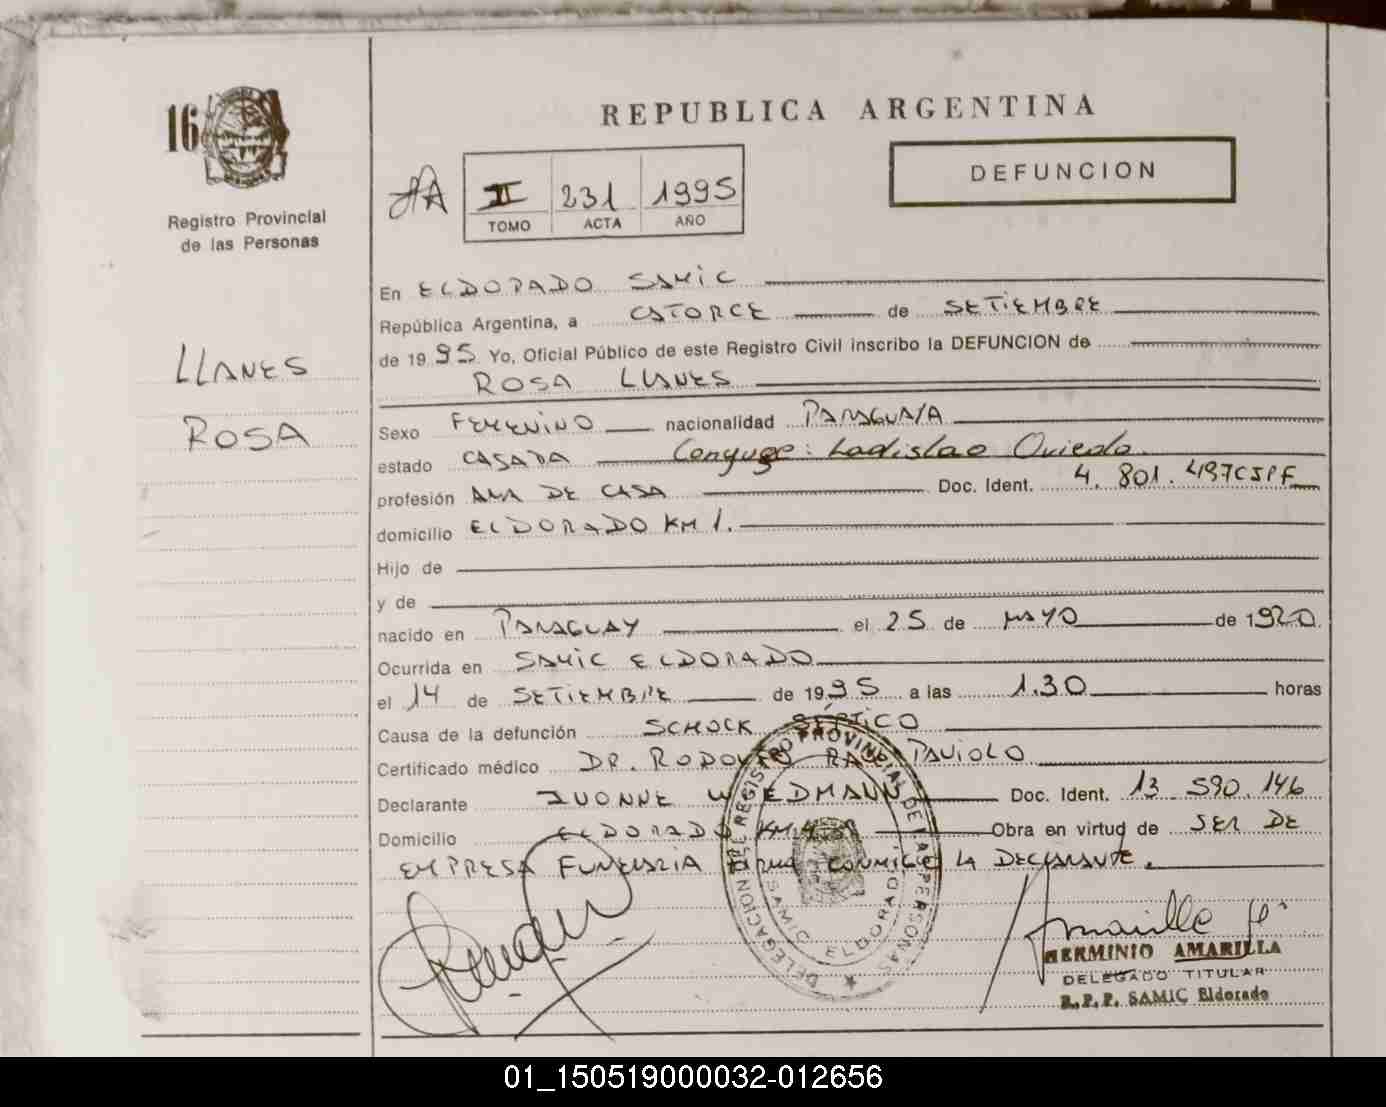 16
Registro Provincial
de las Personas
LLANES
ROSA
REPUBLICA ARGENTINA
DEFUNCION
II 231 1995
TOMO ACTA AÑO
En ELDORADO SAMIC
República Argentina, a CATORCE de SETIEMBRE
de 1995 Yo, Oficial Público de este Registro Civil inscribo la DEFUNCION de
ROSA LLANES
Sexo FEMENINO nacionalidad PARAGUAYA
estado CASADA Conyuge: Ladislao Oviedo
profesión AMA DE CASA Doc. Ident. 4.801.497 CIPF
domicilio ELDORADO KM 1.
Hijo de
y de
nacido en PARAGUAY el 25 de MAYO de 1920
Ocurrida en SAMIC ELDORADO
el 14 de SETIEMBRE de 1995 a las 1.30 horas
Causa de la defunción SCHOCK SEPTICO
Certificado médico DR. RODOLFO RAUL PAVIOLO
Declarante IVONNE WIEDMANN Doc. Ident. 13.590.146
Domicilio ELDORADO KM Obra en virtud de SER DE
EMPRESA FUNERARIA FIRMA CONMIGO LA DECLARANTE.
DELEGACION DEL REGISTRO PROVINCIAL DE LAS PERSONAS
SAMIC ELDORADO
HERMINIO AMARILLA
DELEGADO TITULAR
R.P.P. SAMIC Eldorado
01_150519000032-012656